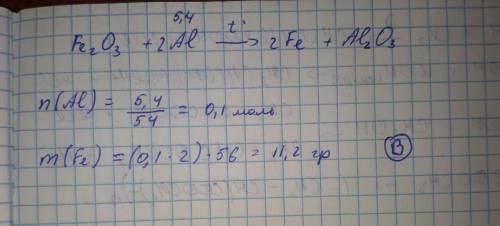 5,4
Fe₂O₃ + 2Al t° → 2Fe + Al₂O₃
n(Al) = 5,4/54 = 0,1 моль
m(Fe) = (0,1 · 2) · 56 = 11,2 гр
B